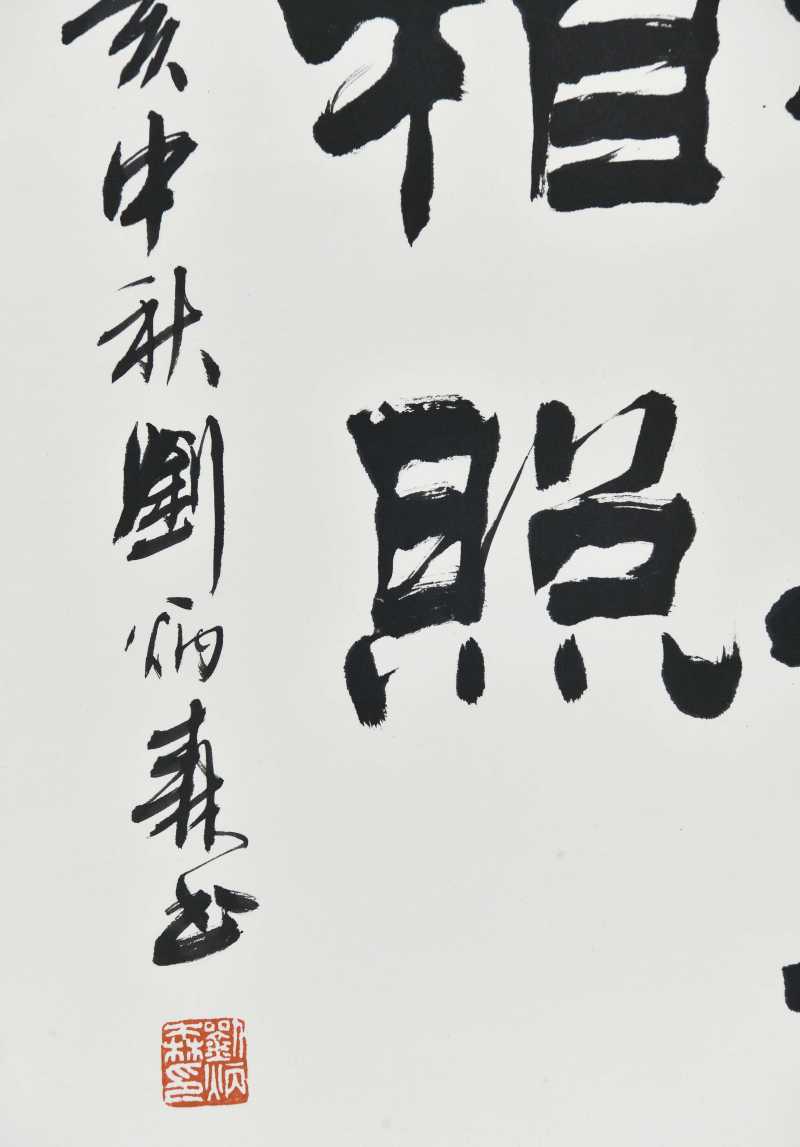 相照
亥中秋劉炳森书
劉炳
森印